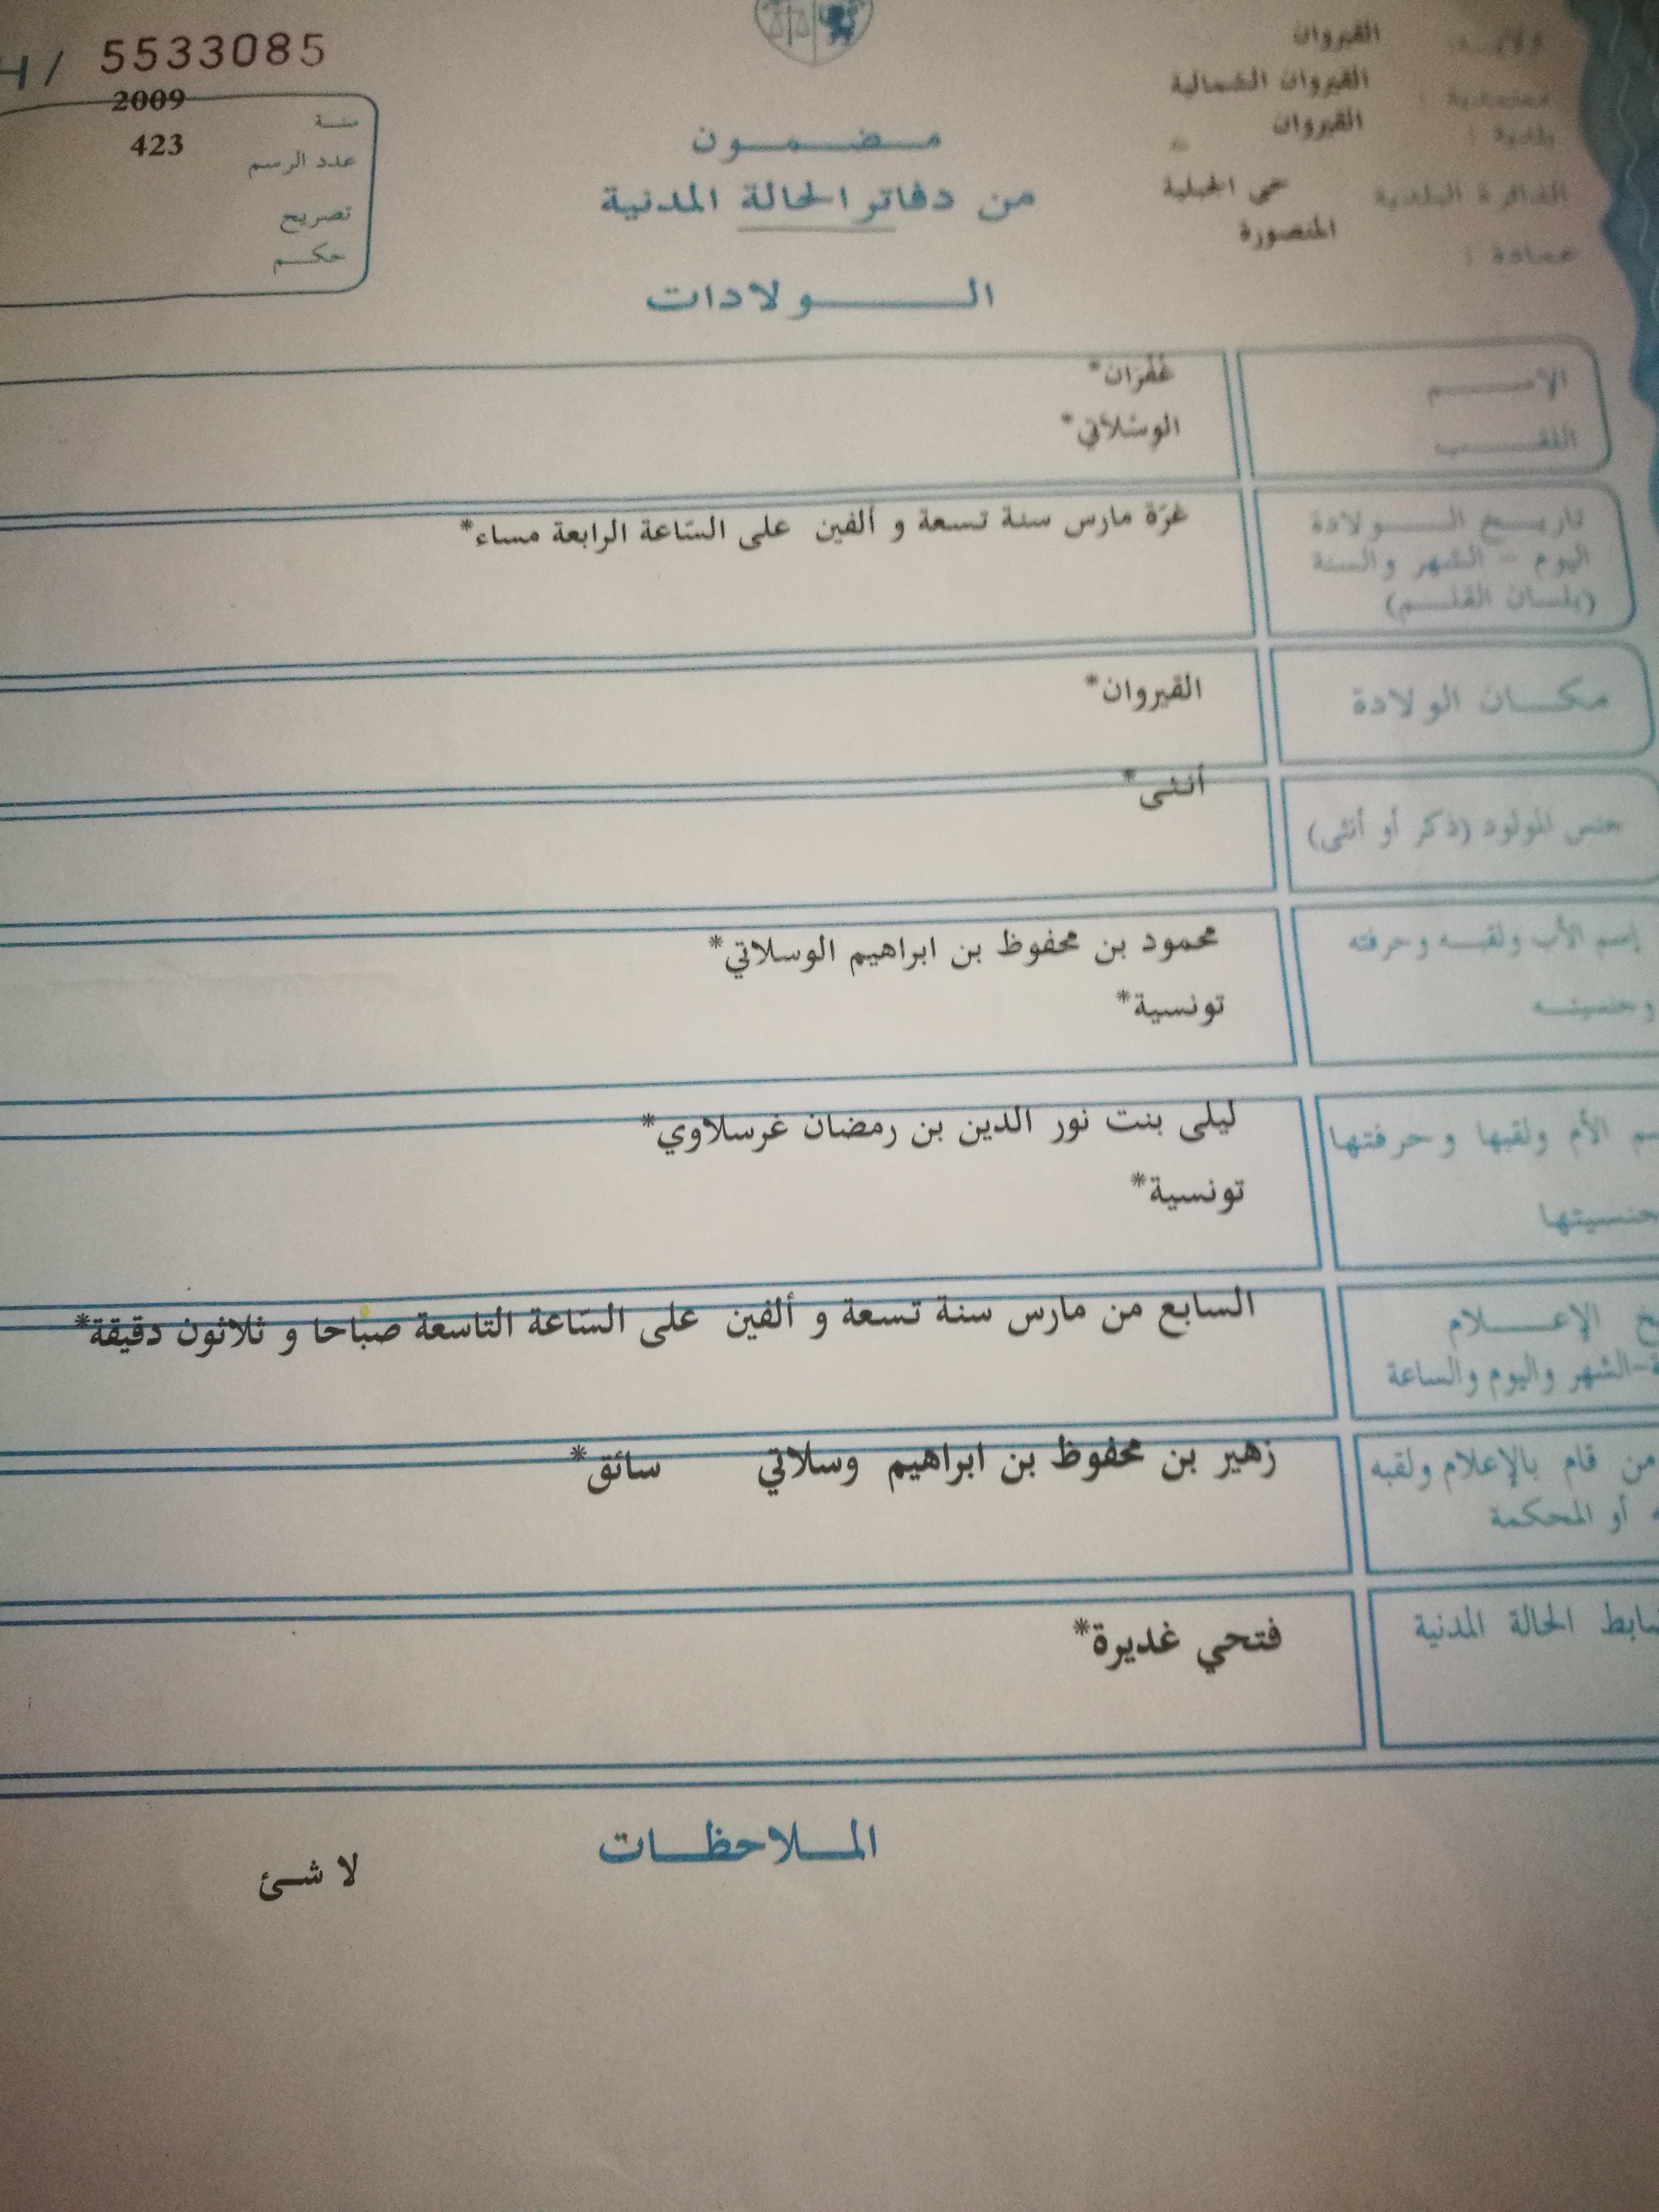 H/ 5533085
سنة 2009
عدد الرسم 423
تصريح
حكم
ولاية : القيروان
معتمدية : القيروان الشمالية
بلدية : القيروان
الدائرة البلدية حي الجبلية
عمادة : المنصورة
مضمون
من دفاتر الحالة المدنية
الولادات
الاسم غفران*
اللقب الوسلاتي*
تاريخ الولادة غرّة مارس سنة تسعة و ألفين على السّاعة الرابعة مساء*
اليوم - الشهر والسنة
(بلسان القلم)
مكان الولادة القيروان*
جنس المولود (ذكر أو أنثى) أنثى*
إسم الأب ولقبه وحرفته محمود بن محفوظ بن ابراهيم الوسلاتي*
وجنسيته تونسية*
الأم ولقبها وحرفتها ليلى بنت نور الدين بن رمضان غرسلاوي*
جنسيتها تونسية*
الإعلام السابع من مارس سنة تسعة و ألفين على السّاعة التاسعة صباحا و ثلاثون دقيقة*
الشهر واليوم والساعة
من قام بالإعلام ولقبه زهير بن محفوظ بن ابراهيم وسلاتي سائق*
أو المحكمة
الحالة المدنية فتحي غديرة*
الملاحظات
لا شئ